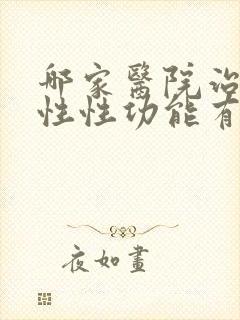 那家醫院治
性性功能有
夜如晝